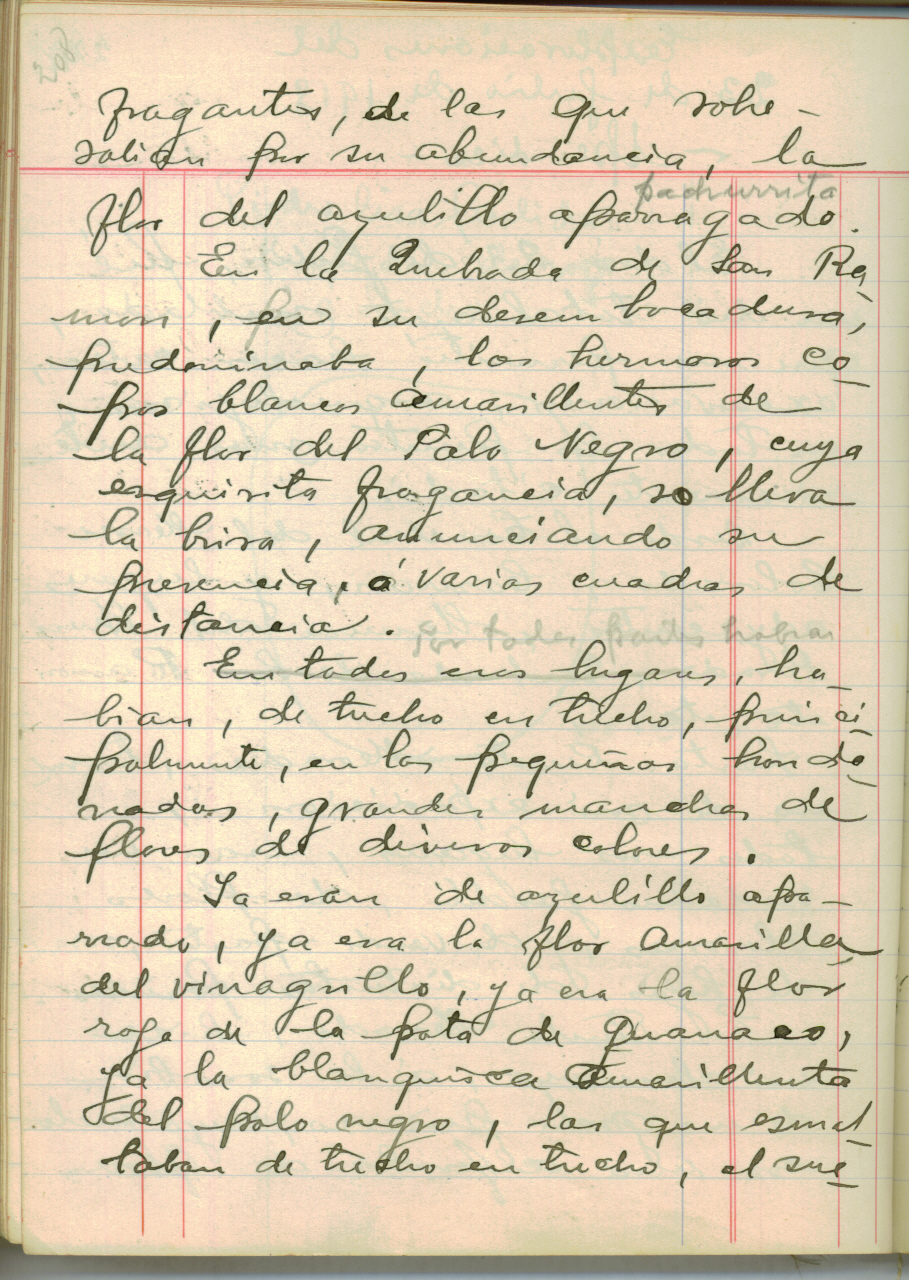 208
fragantes, de las que sobre-
salian por su abundancia, la
pachurrita
flor del azulillo aparragado.
En la Quebrada de San Ra-
mon, en su desembocadura,
predominaba, los hermosos co-
pos blancos amarillentos de
la flor del Palo Negro, cuya
esquisita fragancia, se lleva
la brisa, anunciando su
presencia, á varias cuadras de
distancia.
Por todas partes habian
En todos esos lugares, ha-
bian, de trecho en trecho, princi
palmente, en las pequeñas honda-
nadas, grandes manchas de
flores de diversos colores.
Ya eran de azulillo apa-
rrado, ya era la flor amarilla
del vinagrillo, ya era la flor
roja de la pata de guanaco,
ya la blanquisca amarillenta
del palo negro, las que esmal-
taban de trecho en trecho, el sue-